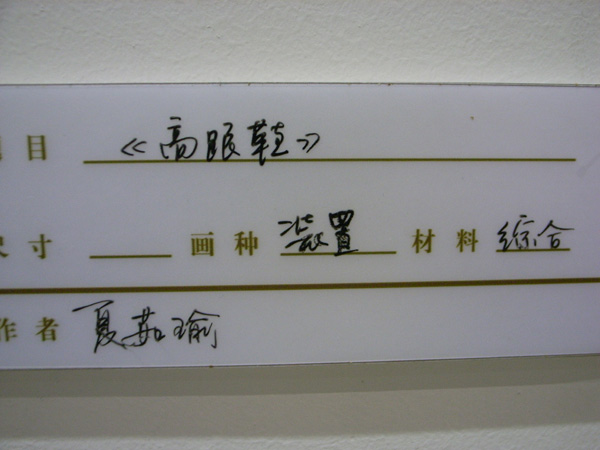 目 《高跟鞋》
尺寸 画种 装置 材料 综合
作者 夏茹瑜